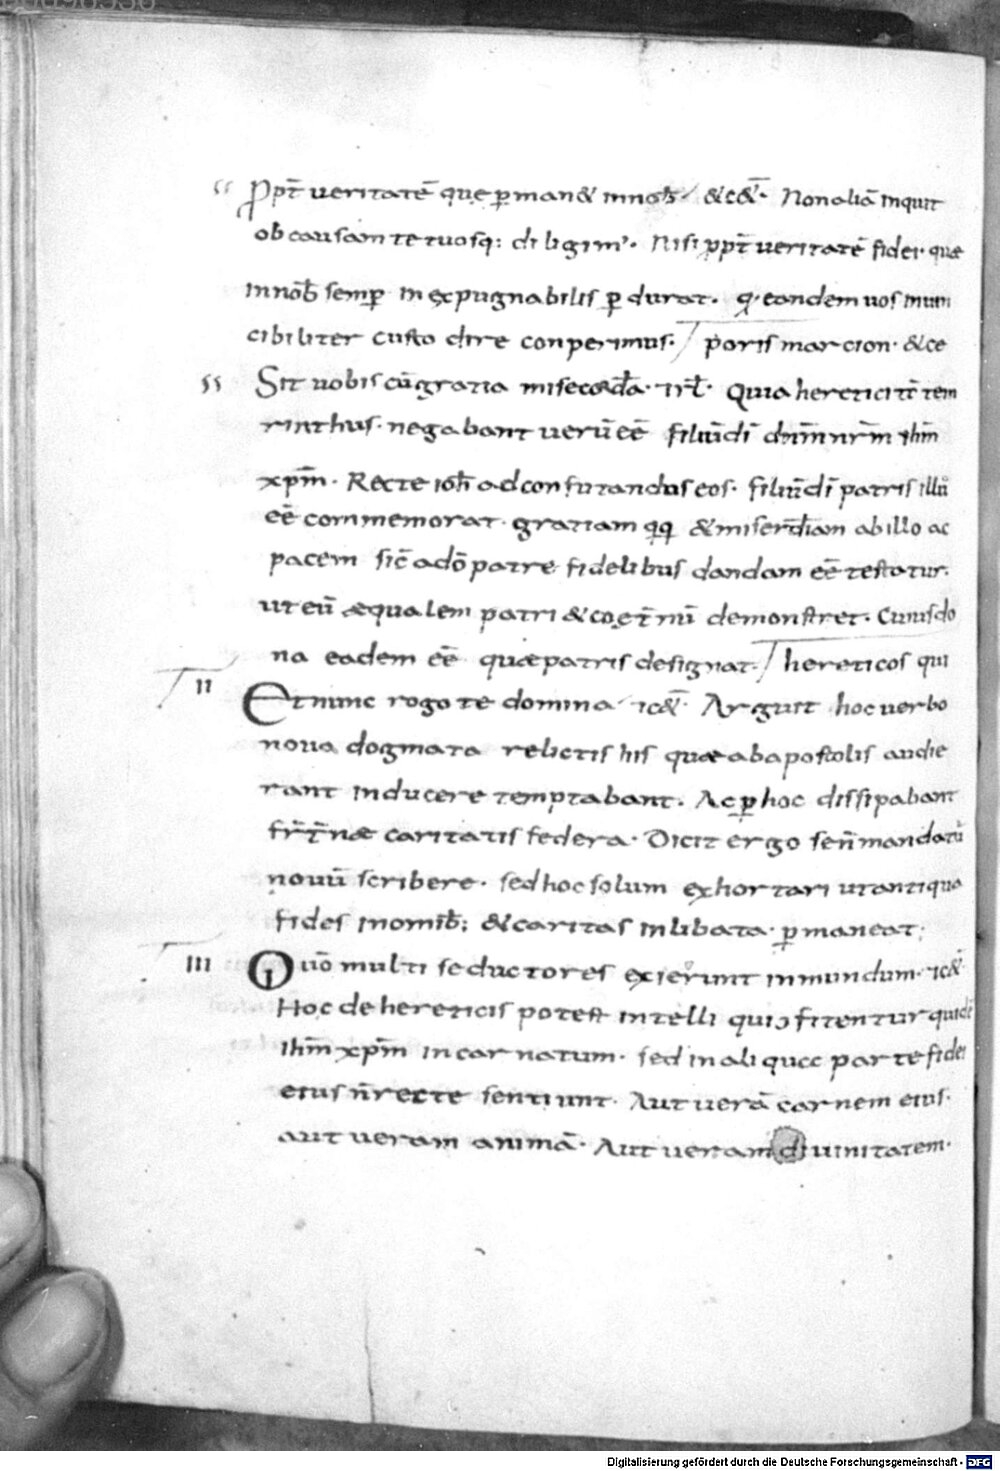 Ppt̄ ueritatē que ꝑman& innob̄ &c&̄. Non aliā inquit
ob causam te tuosq; diligim'. Nisi ppt̄ ueritatē fidei quæ
innob̄ semꝑ inexpugnabilis ꝑdurat. eandem uos inuin
cibiliter custodire conperimus. poris marcion &ce
Sit uobiscū gratia Quia heretici
rinthus negabant uerū eē filiūdī dn̄m nr̄m ihm̄
xpm̄. Recte ioh̄ ad confutandus eos. filiūdī patris illū
eē commemorat. gratiam qq &miserd̄iam ab illo ac
pacem sic̄ adō patre fidelibus dandam eē testatur.
ut eū æqualem patri &coęt̄nū demonstret. Cuius do
na eadem eē quæ patris designat. hereticos qui
II Et nunc rogo te domina Arguit hoc uerbo
noua dogmata relictis his quæ ab apostolis audie
rant inducere temptabant. Ac ꝑ hoc dissipabant
fr̄t̄næ caritatis federa. Dicit ergo se n̄ mandatū
nouū scribere. sed hoc solum exhortari ut antiqua
fides inomīb; &caritas inlibata ꝑmaneat;
III Quō multi seductores exierunt in mundum.
Hoc de hereticis potest intelli qui ɔfitentur quidē
ihm̄ xpm̄ incarnatum. sed in aliqua parte fidei
eius n̄ recte sentiunt. Aut uerā carnem eius.
aut ueram animā. Aut ueram diuinitatem.
Digitalisierung gefördert durch die Deutsche Forschungsgemeinschaft - DFG